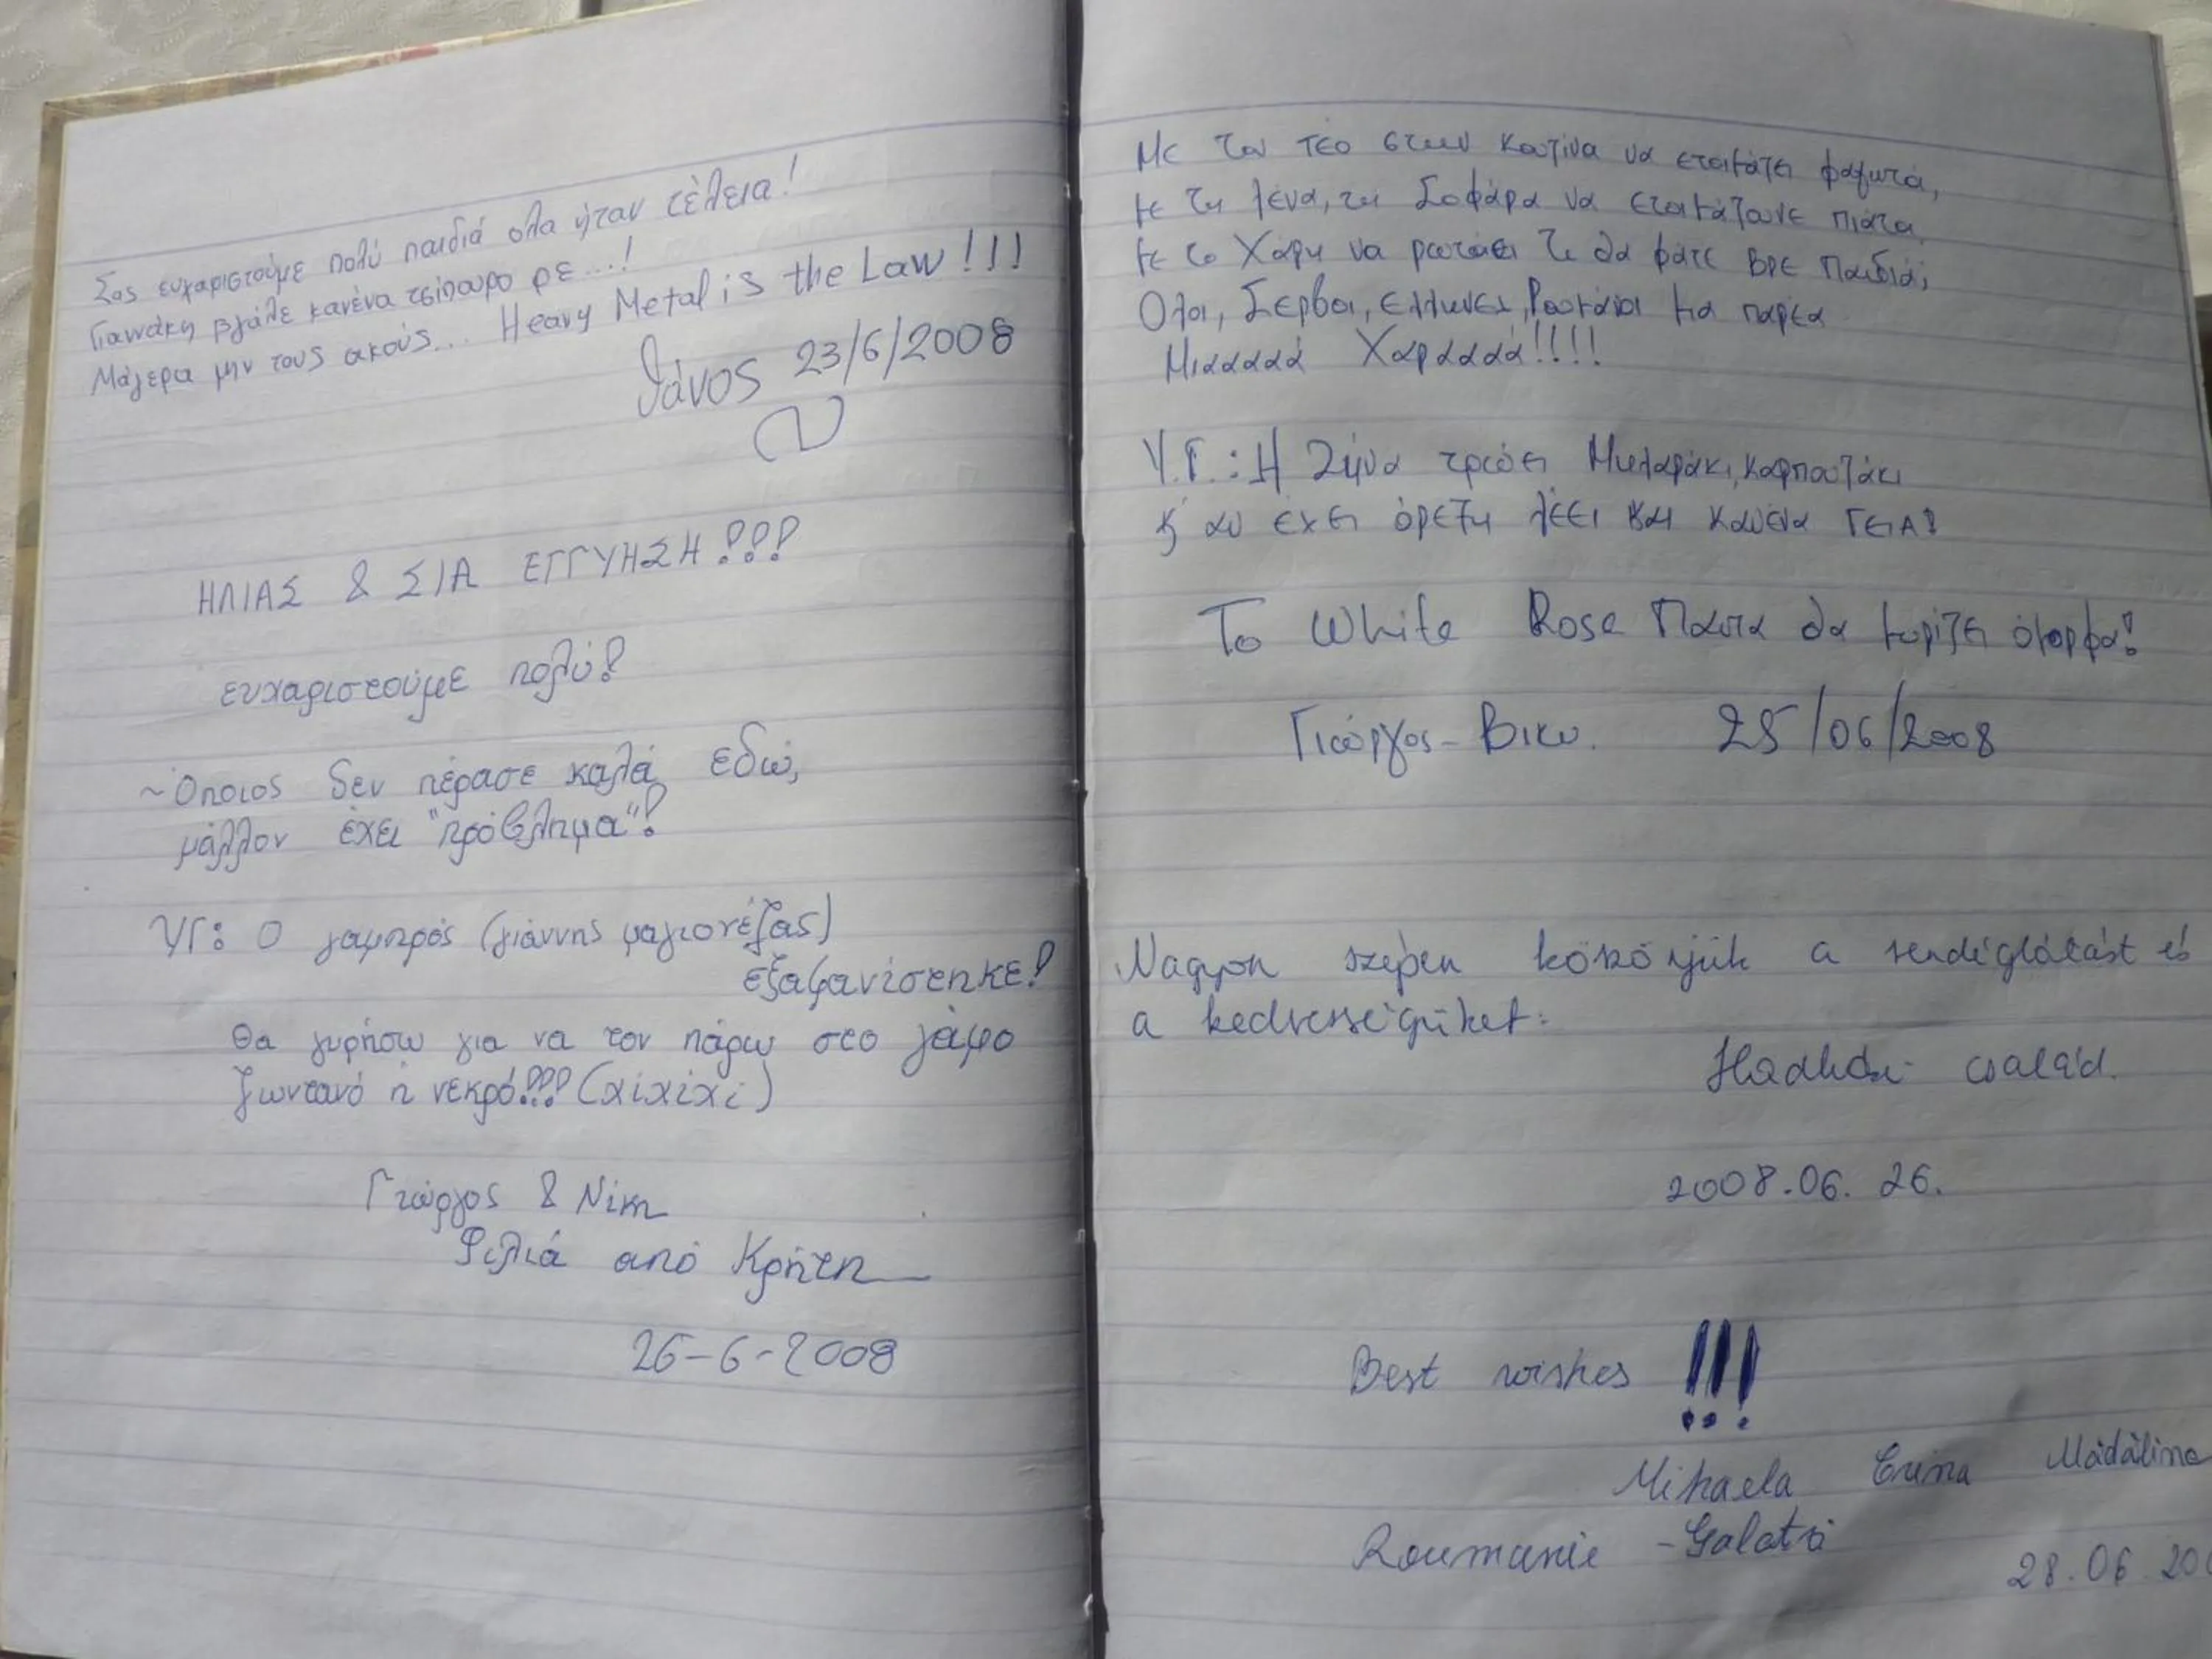 Σας ευχαριστούμε πολύ παιδιά ολα ήταν τέλεια!
Γιαννάκη βγάλε κανένα τσίπουρο ρε...!
Μάγερα μην τους ακούς... Heavy Metal is the Law!!!
Θάνος 23/6/2008
ΗΛΙΑΣ & ΣΙΑ ΕΓΓΥΗΣΗ!!!
ευχαριστούμε πολύ!
~Όποιος δεν πέρασε καλά εδώ,
μάλλον έχει "πρόβλημα"!
ΥΓ: Ο γαμπρός (γιάννης μαγιονέζας)
εξαφανίστηκε!
Θα γυρήσω για να τον πάρω στο γάμο
ζωντανό ή νεκρό!!! (χίχίχί)
Γιώργος & Νίκη
Φιλιά από Κρήτη
26-6-2008
Με τον τέο στην κουζίνα να ετοιμάζει φαγητά,
με τη λένα, τη Σοφάρα να ετοιμάζουνε πιάτα
με το Χάρη να ρωτάει τι θα φάτε βρε παιδιά;
Ολοι, Σερβοι, ελληνες, Ρουμάνοι μια παρέα
Μιααααά Χαραααά!!!!
Υ.Γ.: Η Ζήνα τρώει Μηλαράκι, καρπουζάκι
κ αν έχει όρεξη λέει και κανένα ΓΕΙΑ!
Το White Rose Παντα θα μυρίζει όμορφα!
Γιώργος - Βικυ. 25/06/2008
Nagyon szépen köszönjük a vendéglátást és
a kedvességüket.
család.
2008.06.26.
Best wishes !!!
Mihaela Crina Mădălina
Roumanie - Galati
28.06.200